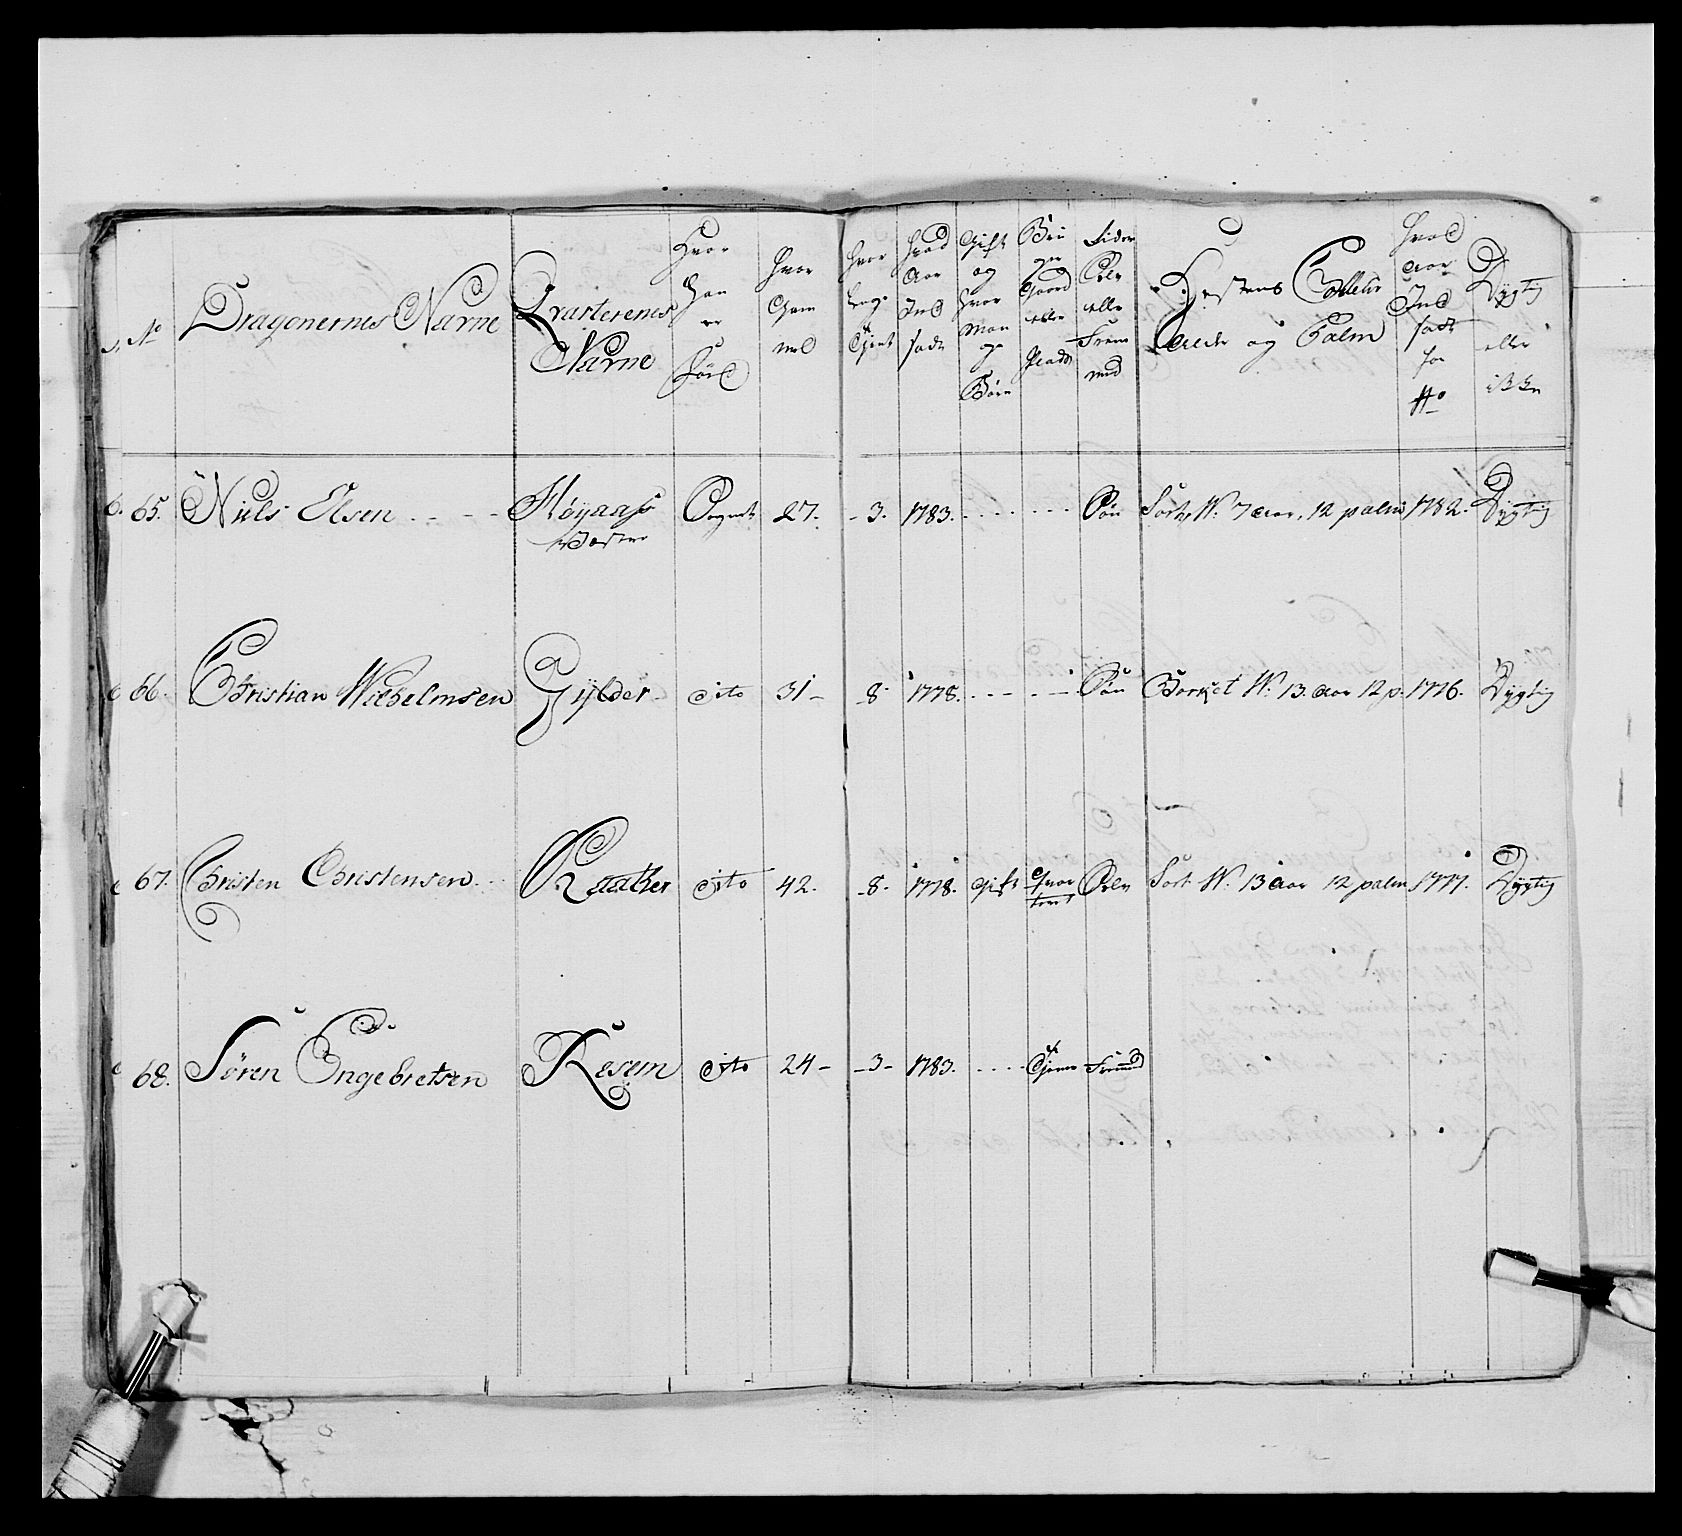 No Dragonernes Navne Qvarterenes Navne Hvor Han er Föed Hvor Gam mel Hvor lenge Tjent Hvad Aar Ind sadt Gift og Hvor Man ge Börn Bru ger Gaard eller Pladds Sider Selv eller Frem med Hestens Couleur Alder og Palm Hvad Aar Ind sadt for No Dygtig eller ikke
65. Niels Olsen Höyaass 27. 3. 1783. Sön Sort, W: 7 Aar, 12 palm 1782. Dygtig
Wester
66. Christian Wilhelmsen Gylder dito 31 8 1778. Sön Borket W: 13 Aar 12 p. 1776. Dygtig
67. Christen Christensen Raaker dito 42. 8. 1778. Gift Selv Sort W: 13 Aar 12 palm 1777. Dygtig
68. Sören Engebretsen Resem dito 24 3 1783. Tjener Fremmed